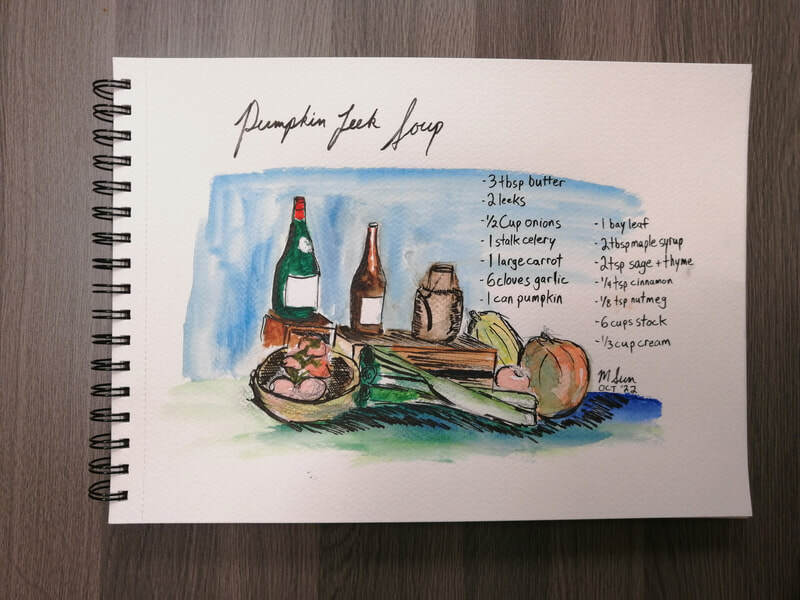 Pumpkin Leek Soup
-3 tbsp butter
-2 leeks
-½ Cup onions
-1 stalk celery
-1 large carrot
-6 cloves garlic
-1 can pumpkin
-1 bay leaf
-2 tbsp maple syrup
-2 tsp sage + thyme
-¼ tsp cinnamon
-⅛ tsp nutmeg
-6 cups stock
-⅓ cup cream
M Sun
OCT '22